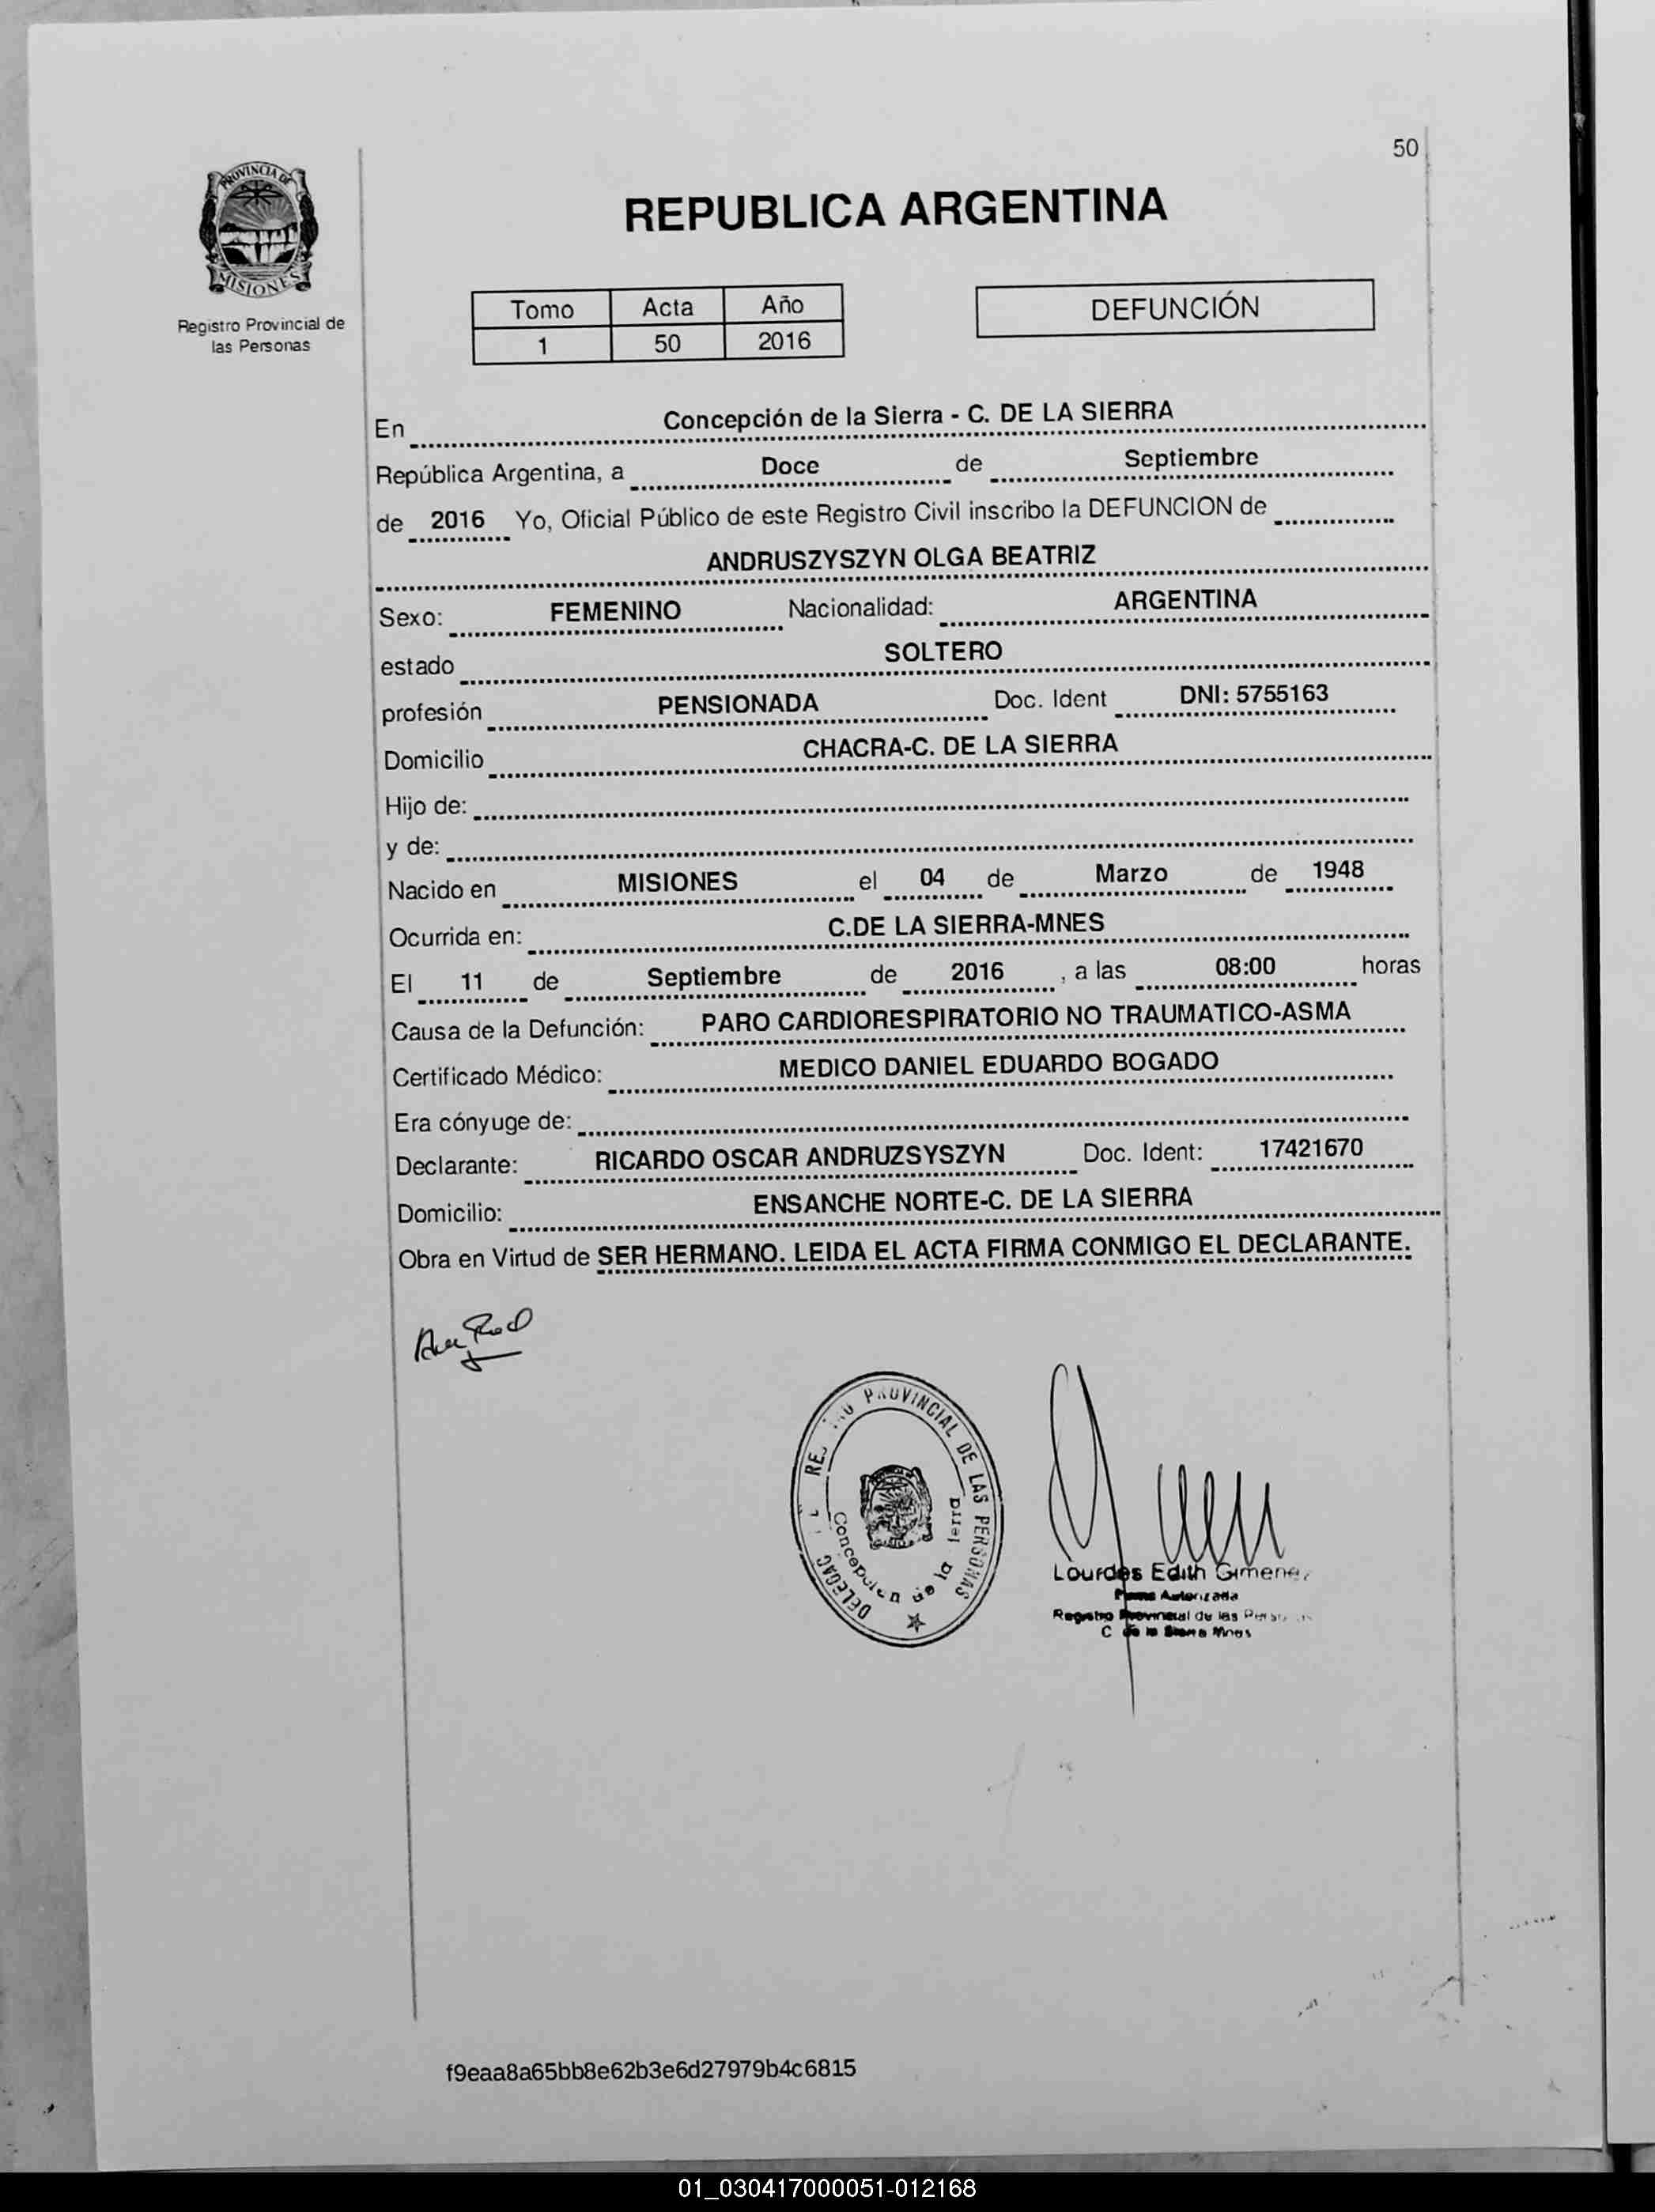 50
PROVINCIA DE
MISIONES
Registro Provincial de
las Personas
REPUBLICA ARGENTINA
Tomo Acta Año
1 50 2016
DEFUNCIÓN
En Concepción de la Sierra - C. DE LA SIERRA
República Argentina, a Doce de Septiembre
de 2016 Yo, Oficial Público de este Registro Civil inscribo la DEFUNCION de
ANDRUSZYSZYN OLGA BEATRIZ
Sexo: FEMENINO Nacionalidad: ARGENTINA
estado SOLTERO
profesión PENSIONADA Doc. Ident DNI: 5755163
Domicilio CHACRA-C. DE LA SIERRA
Hijo de:
y de:
Nacido en MISIONES el 04 de Marzo de 1948
Ocurrida en: C.DE LA SIERRA-MNES
El 11 de Septiembre de 2016 , a las 08:00 horas
Causa de la Defunción: PARO CARDIORESPIRATORIO NO TRAUMATICO-ASMA
Certificado Médico: MEDICO DANIEL EDUARDO BOGADO
Era cónyuge de:
Declarante: RICARDO OSCAR ANDRUZSYSZYN Doc. Ident: 17421670
Domicilio: ENSANCHE NORTE-C. DE LA SIERRA
Obra en Virtud de SER HERMANO. LEIDA EL ACTA FIRMA CONMIGO EL DECLARANTE.
PROVINCIAL DE LAS PERSONAS
Concepcion de la
Lourdes Edith Gimenez
Autorizada
Registro Provincial de las
C de la Sierra Mnes
f9eaa8a65bb8e62b3e6d27979b4c6815
01_030417000051-012168